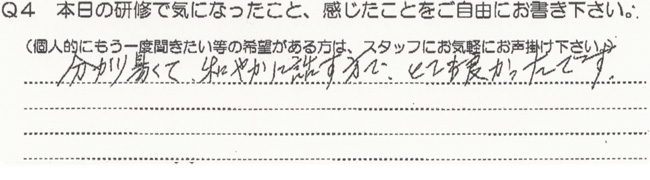 Q4 本日の研修で気になったこと、感じたことをご自由にお書き下さい。
(個人的にもう一度聞きたい等の希望がある方は、スタッフにお気軽にお声掛け下さい。)
分かり易くて、和やかに話す方で、とても良かったです。